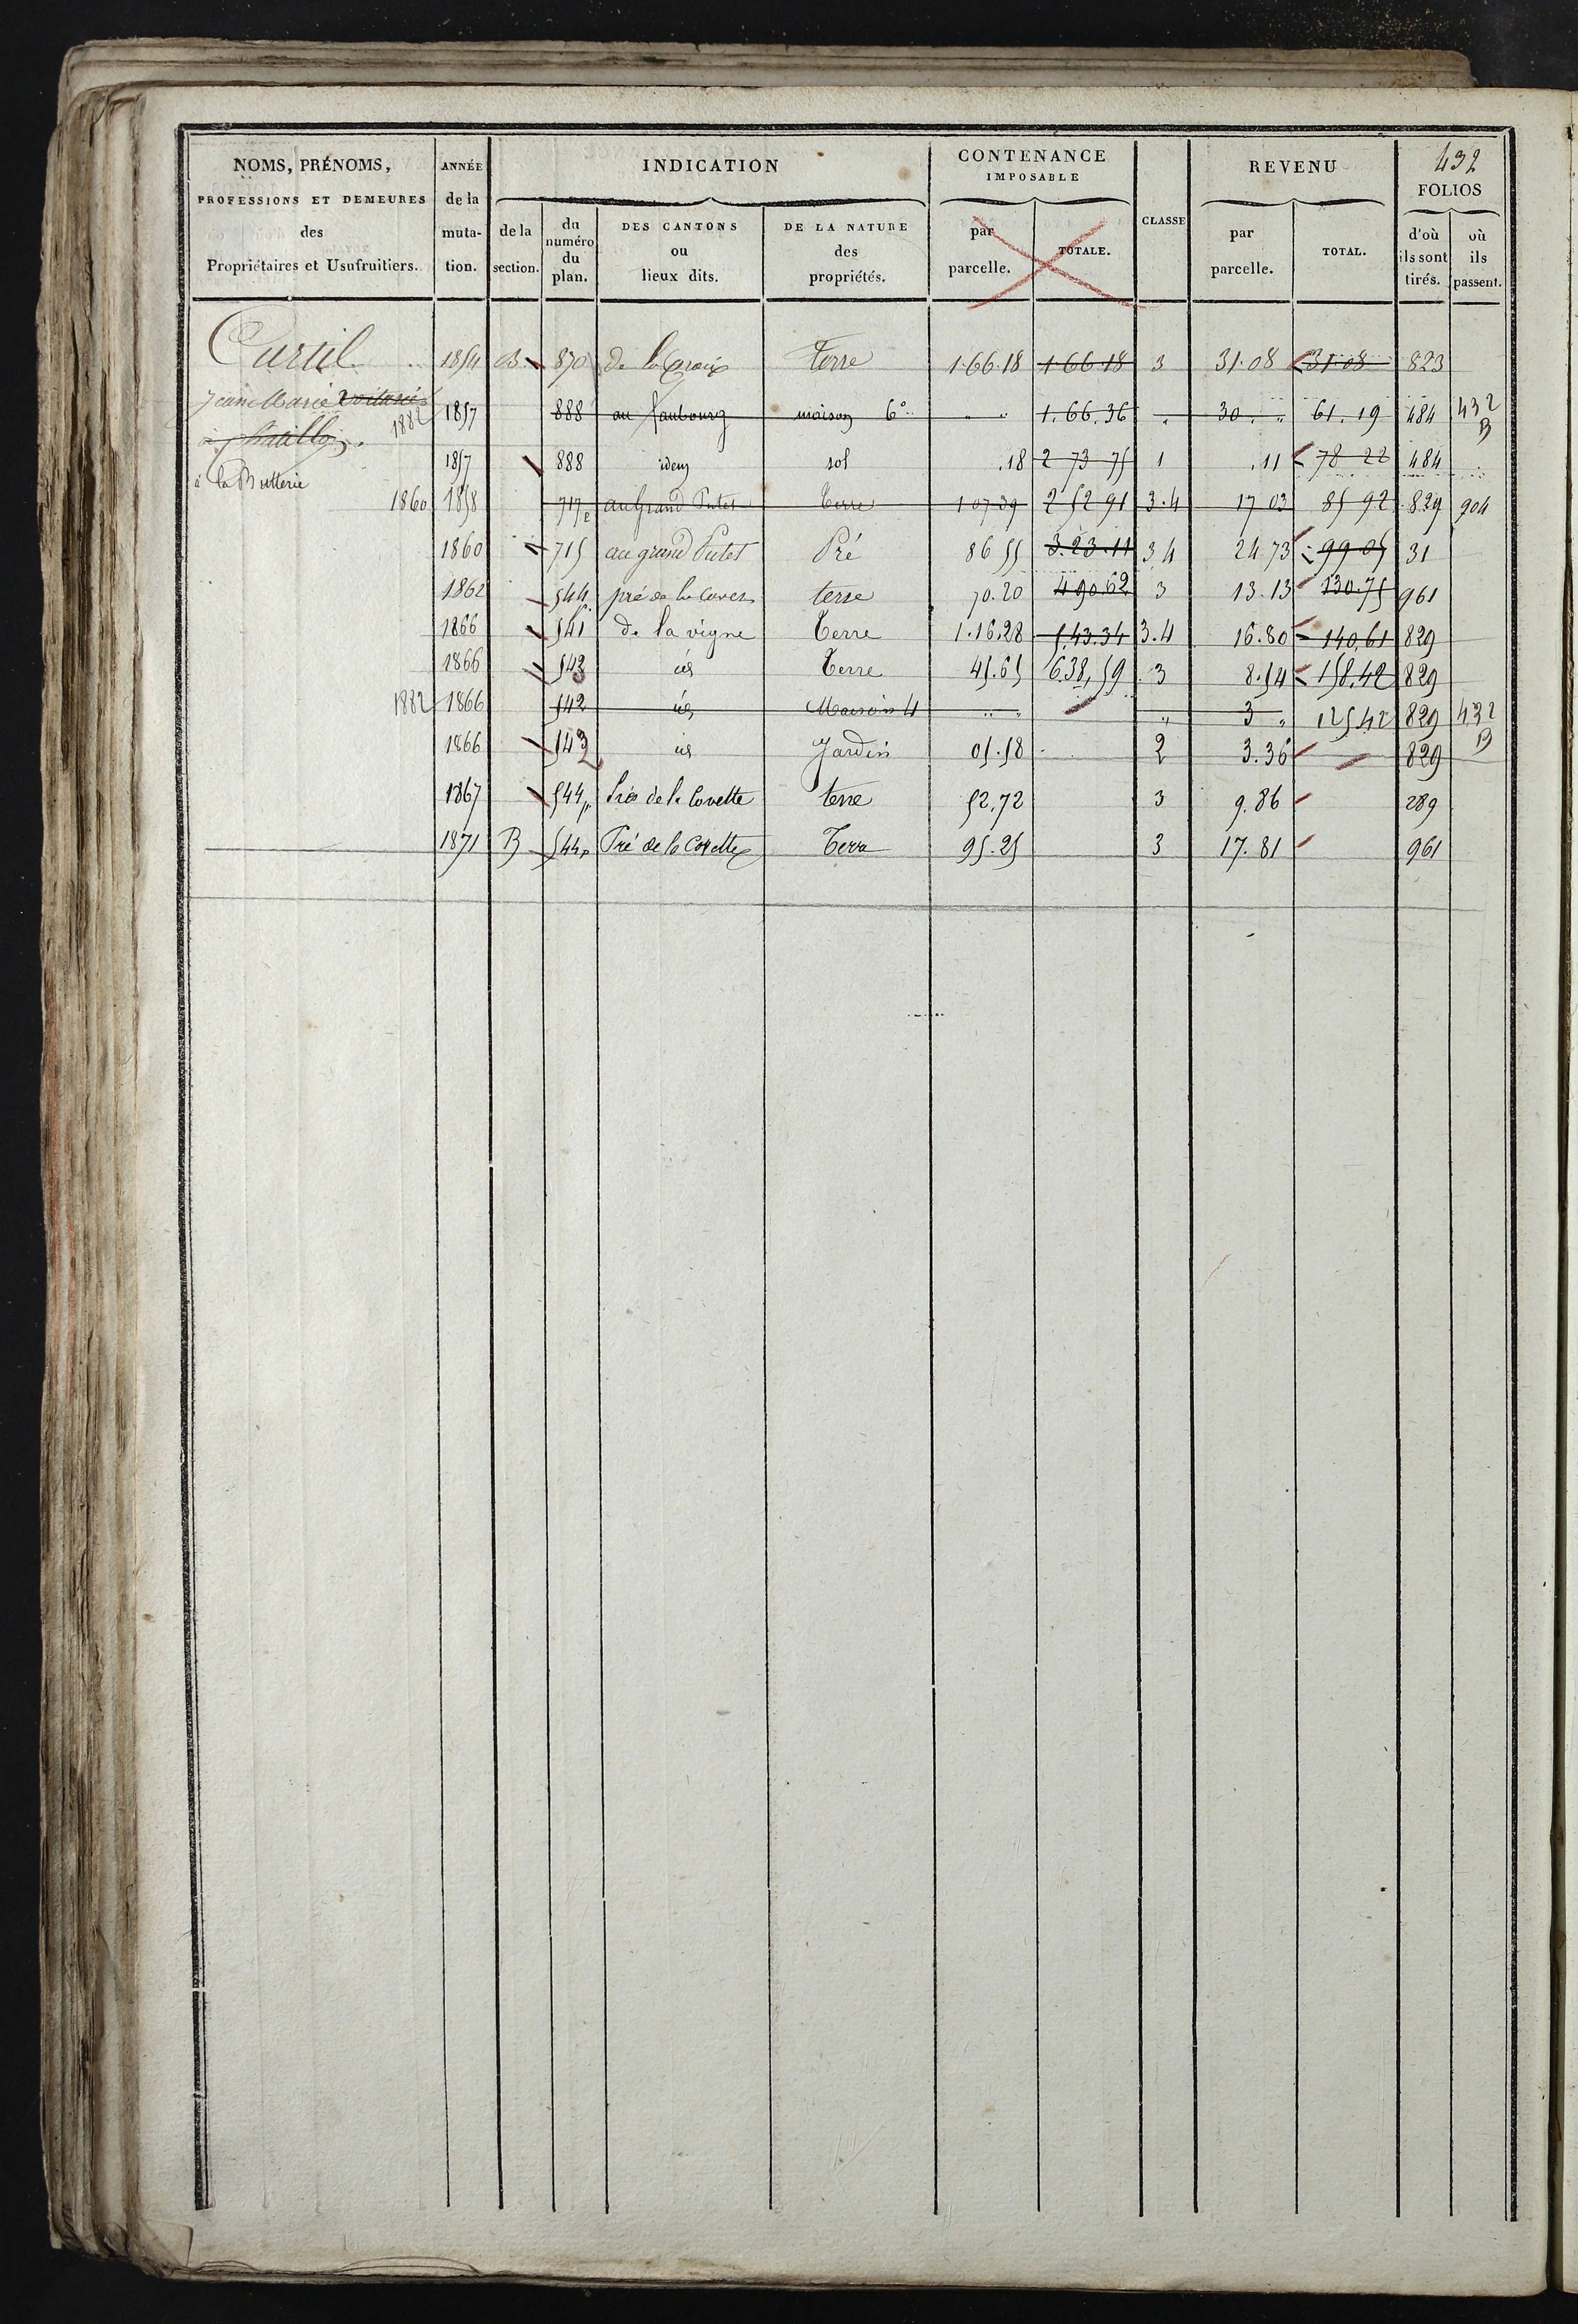 432
NOMS, PRÉNOMS, PROFESSIONS ET DEMEURES des Propriétaires et Usufruitiers.
ANNÉE de la muta- tion.
INDICATION
de la section.
du numéro du plan.
DES CANTONS ou lieux dits.
DE LA NATURE des propriétés.
CONTENANCE IMPOSABLE
par parcelle.
TOTALE.
CLASSE
REVENU
par parcelle.
TOTAL.
FOLIOS
d'où ils sont tirés.
où ils passent.
Curtil 1854 B 870 de la Croix terre 1.66.18 1.66.18 3 31.08 31.08 823
Jean Marie
1882 1857 888 au faubourg maison 6e 1.66.36 30 61.19 484 432 B
à Chatillon
1857 888 idem sol .18 2 73 75 1 .11 78 22 484
à la
1860 1858 717 au Grand Putet terre 1 07 39 2 52 91 3.4 17 03 85 92 829 904
1860 715 au grand Putet Pré 86 55 3.23.11 3 4 24.73 99 05 31
1862 544 p pré de la terre 70.20 4 90.62 3 13.13 130.75 961
1866 541 de la vigne Terre 1.16.28 5.43.34 3.4 16.80 140,61 829
1866 543 id Terre 45.65 6.38,59 3 8.54 158,42 829
1882 1866 542 id Maison 4 3 125 42 829 432 B
1866 543 id Jardin 05.58 2 3.36 829
1867 544 p Prés de la Covette terre 52,72 3 9.86 289
1871 B 544 p Pré de la Covette Terre 95.25 3 17.81 961